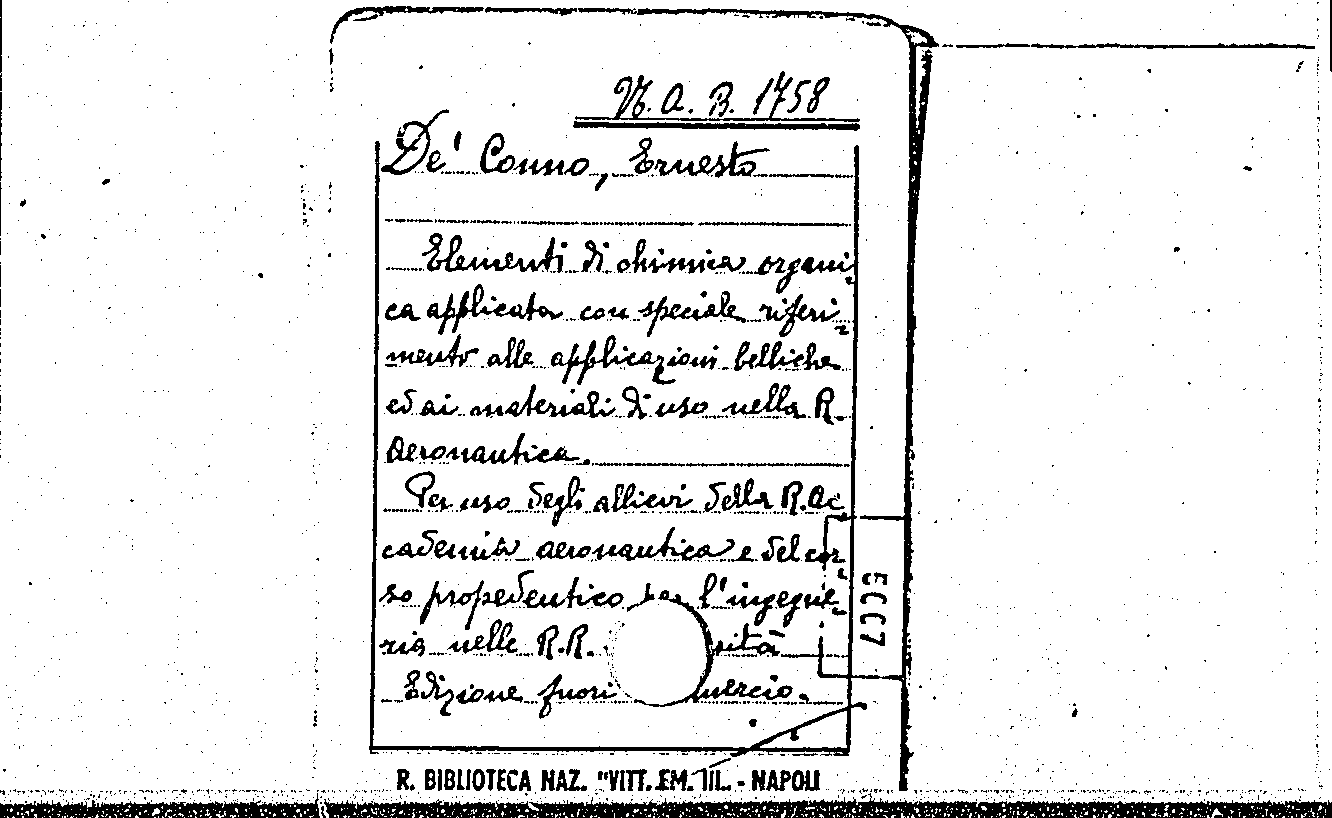 N. A. B. 1758
De' Conno, Ernesto
Elementi di chimica organi-
ca applicata con speciale riferi-
mento alle applicazioni belliche
ed ai materiali di uso nella R.
Aeronautica.
Per uso degli allievi della R. Ac-
cademia aeronautica e del cor-
so propedeutico per l'ingegne-
ria nelle R.R. sità
Edizione fuori mercio.
R. BIBLIOTECA NAZ. "VITT. EM. III. - NAPOLI